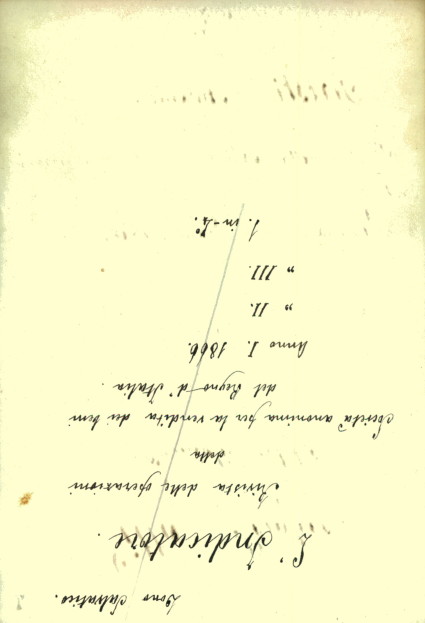 Dono Salvatico.
L'Indicatore.
Rivista delle operazioni
della
Società anonima per la vendita dei beni
del Regno d'Italia.
Anno I. 1866.
„ II.
„ III.
1. in-4º.